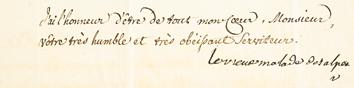 j'ai l'honneur d'être de tout mon Cœur, Monsieur,
vôtre très humble et très obéissant Serviteur.
le vieux malade des alpes
v